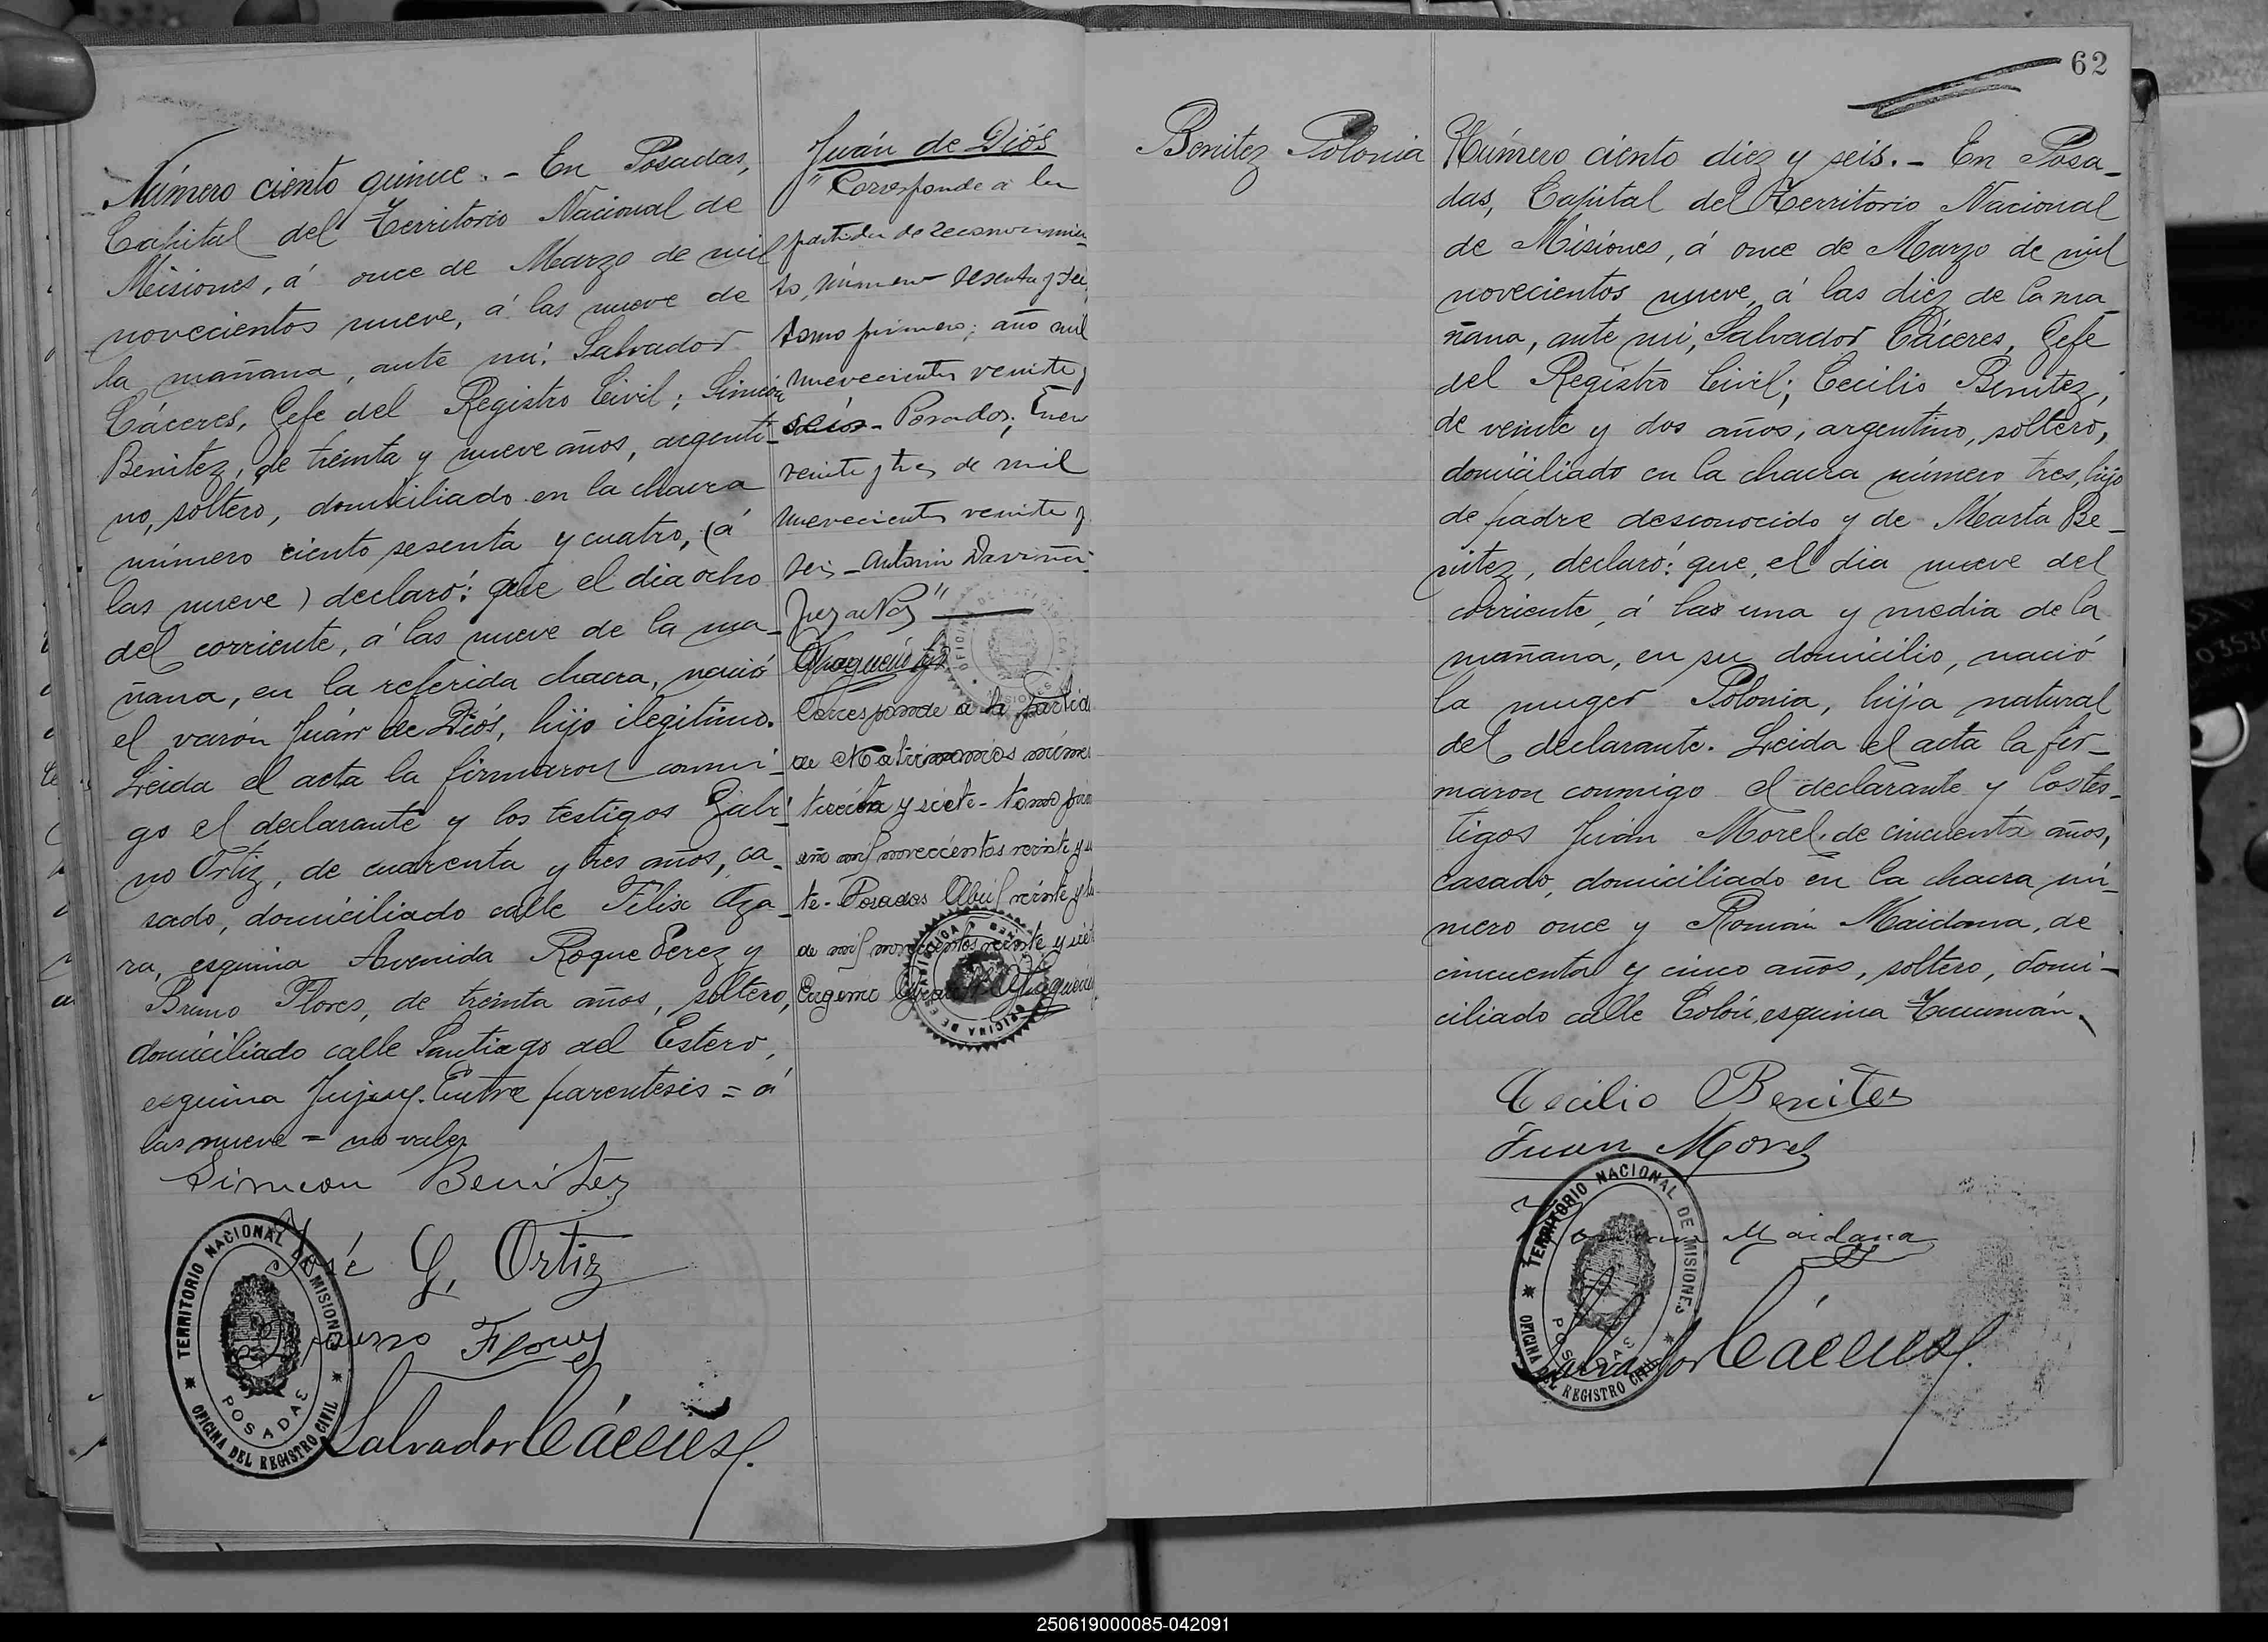 Número ciento quince. - En Posadas,
Capital del Territorio Nacional de
Misiones, á once de Marzo de mil
novecientos nueve, á las nueve de
la mañana, ante mi: Salvador
Cáceres, Gefe del Registro Civil; Simeón
Benitez, de treinta y nueve años, argenti-
no, soltero, domiciliado en la chacra
número ciento sesenta y cuatro, (á
las nueve) declaró: que el dia ocho
del corriente, á las nueve de la ma-
ñana, en la referida chacra, nació
el varón Juán de Diós, hijo ilegitimo.
Leida el acta la firmaron conmi-
go el declarante y los testigos Gabi-
no Ortiz, de cuarenta y tres años, ca-
sado, domiciliado calle Félix Aza-
ra, esquina Avenida Roque Perez y
Bruno Flores, de treinta años, soltero,
domiciliado calle Santiago del Estero,
esquina Jujuy. Entre parentesis = á
las nueve = no vale
Simeon Benitez
José G. Ortiz
Bruno Flores
Salvador Cáceres
TERRITORIO NACIONAL DE MISIONES
POSADAS
OFICINA DEL REGISTRO CIVIL
Juán de Diós
"Corresponde a la
partida de reconocimien-
to, número sesenta y
tomo primero; año mil
nuevecientos veinte y
seis - Posadas; Enero
veinte y tres de mil
nuevecientos veinte y
seis - Antonio
Juez de Paz"
Corresponde a la partida
de Matrimonios
treinta y siete - tomo
año mil novecientos veinte y
te - Posadas Abril veinte y
de mil novecientos veinte y
Eugenio
62
Benitez Polonia
Número ciento diez y seis. - En Posa-
das, Capital del Territorio Nacional
de Misiones, á once de Marzo de mil
novecientos nueve, á las diez de la ma-
ñana, ante mi, Salvador Cáceres, Gefe
del Registro Civil; Cecilio Benitez,
de veinte y dos años, argentino, soltero,
domiciliado en la chacra número tres, hijo
de padre desconocido y de Marta Be-
nitez, declaró: que, el dia nueve del
corriente, á las una y media de la
mañana, en su domicilio, nació
la muger Polonia, hija natural
del declarante. Leida el acta la fir-
maron conmigo el declarante y los tes-
tigos Juán Morel, de cincuenta años,
casado, domiciliado en la chacra nú-
mero once y Román Maidana, de
cincuenta y cinco años, soltero, domi-
ciliado calle Colón, esquina Tucumán.
Cecilio Benites
Juan Morel
Roman Maidana
Salvador Cáceres
TERRITORIO NACIONAL DE MISIONES
POSADAS
OFICINA DEL REGISTRO CIVIL
250619000085-042091